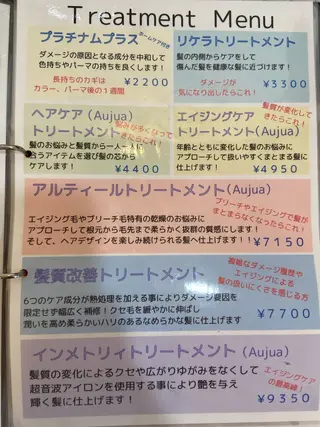 Treatment Menu
プラチナムプラス ホームケア付き
ダメージの原因となる成分を中和して
色持ちやパーマの持ちを良くします!
長持ちのカギは
カラー、パーマ後の1週間
¥2200
リケラトリートメント
髪の内側からケアをして
傷んだ髪を健康な髪に近づけます!
ダメージが
気になり出したらこれ!
¥3300
ヘアケア(Aujua)
トリートメント
悩みが多くなって
きたらこれ!
髪のお悩みと髪質から一人一人に
合うアイテムを選び髪の芯から
ケアします!
¥4400
髪質が変化して
きたらこれ!
エイジングケア
トリートメント(Aujua)
年齢とともに変化した髪のお悩みに
アプローチして扱いやすくまとまる髪に
仕上げます!
¥4950
アルティールトリートメント(Aujua)
ブリーチやエイジングで髪が
まとまらなくなったらこれ!
エイジング毛やブリーチ毛特有の乾燥のお悩みに
アプローチして根元から毛先まで柔らかく抜群の質感にします!
そして、ヘアデザインを楽しみ続けられる髪へ仕上げます!!
¥7150
髪質改善トリートメント
複雑なダメージ履歴や
エイジングによる
髪の扱いにくさを感じる方
6つのケア成分が熱処理を加える事によりダメージ要因を
限定せず幅広く補修!クセ毛を緩やかに伸ばし
潤いを高め柔らかいハリのあるなめらかな髪に仕上げます
¥7700
インメトリィトリートメント(Aujua)
髪質の変化によるクセや広がりゆがみをなくして
超音波アイロンを使用する事により艶を与え
輝く髪に仕上げます!
エイジングケア
の最高峰!
¥9350